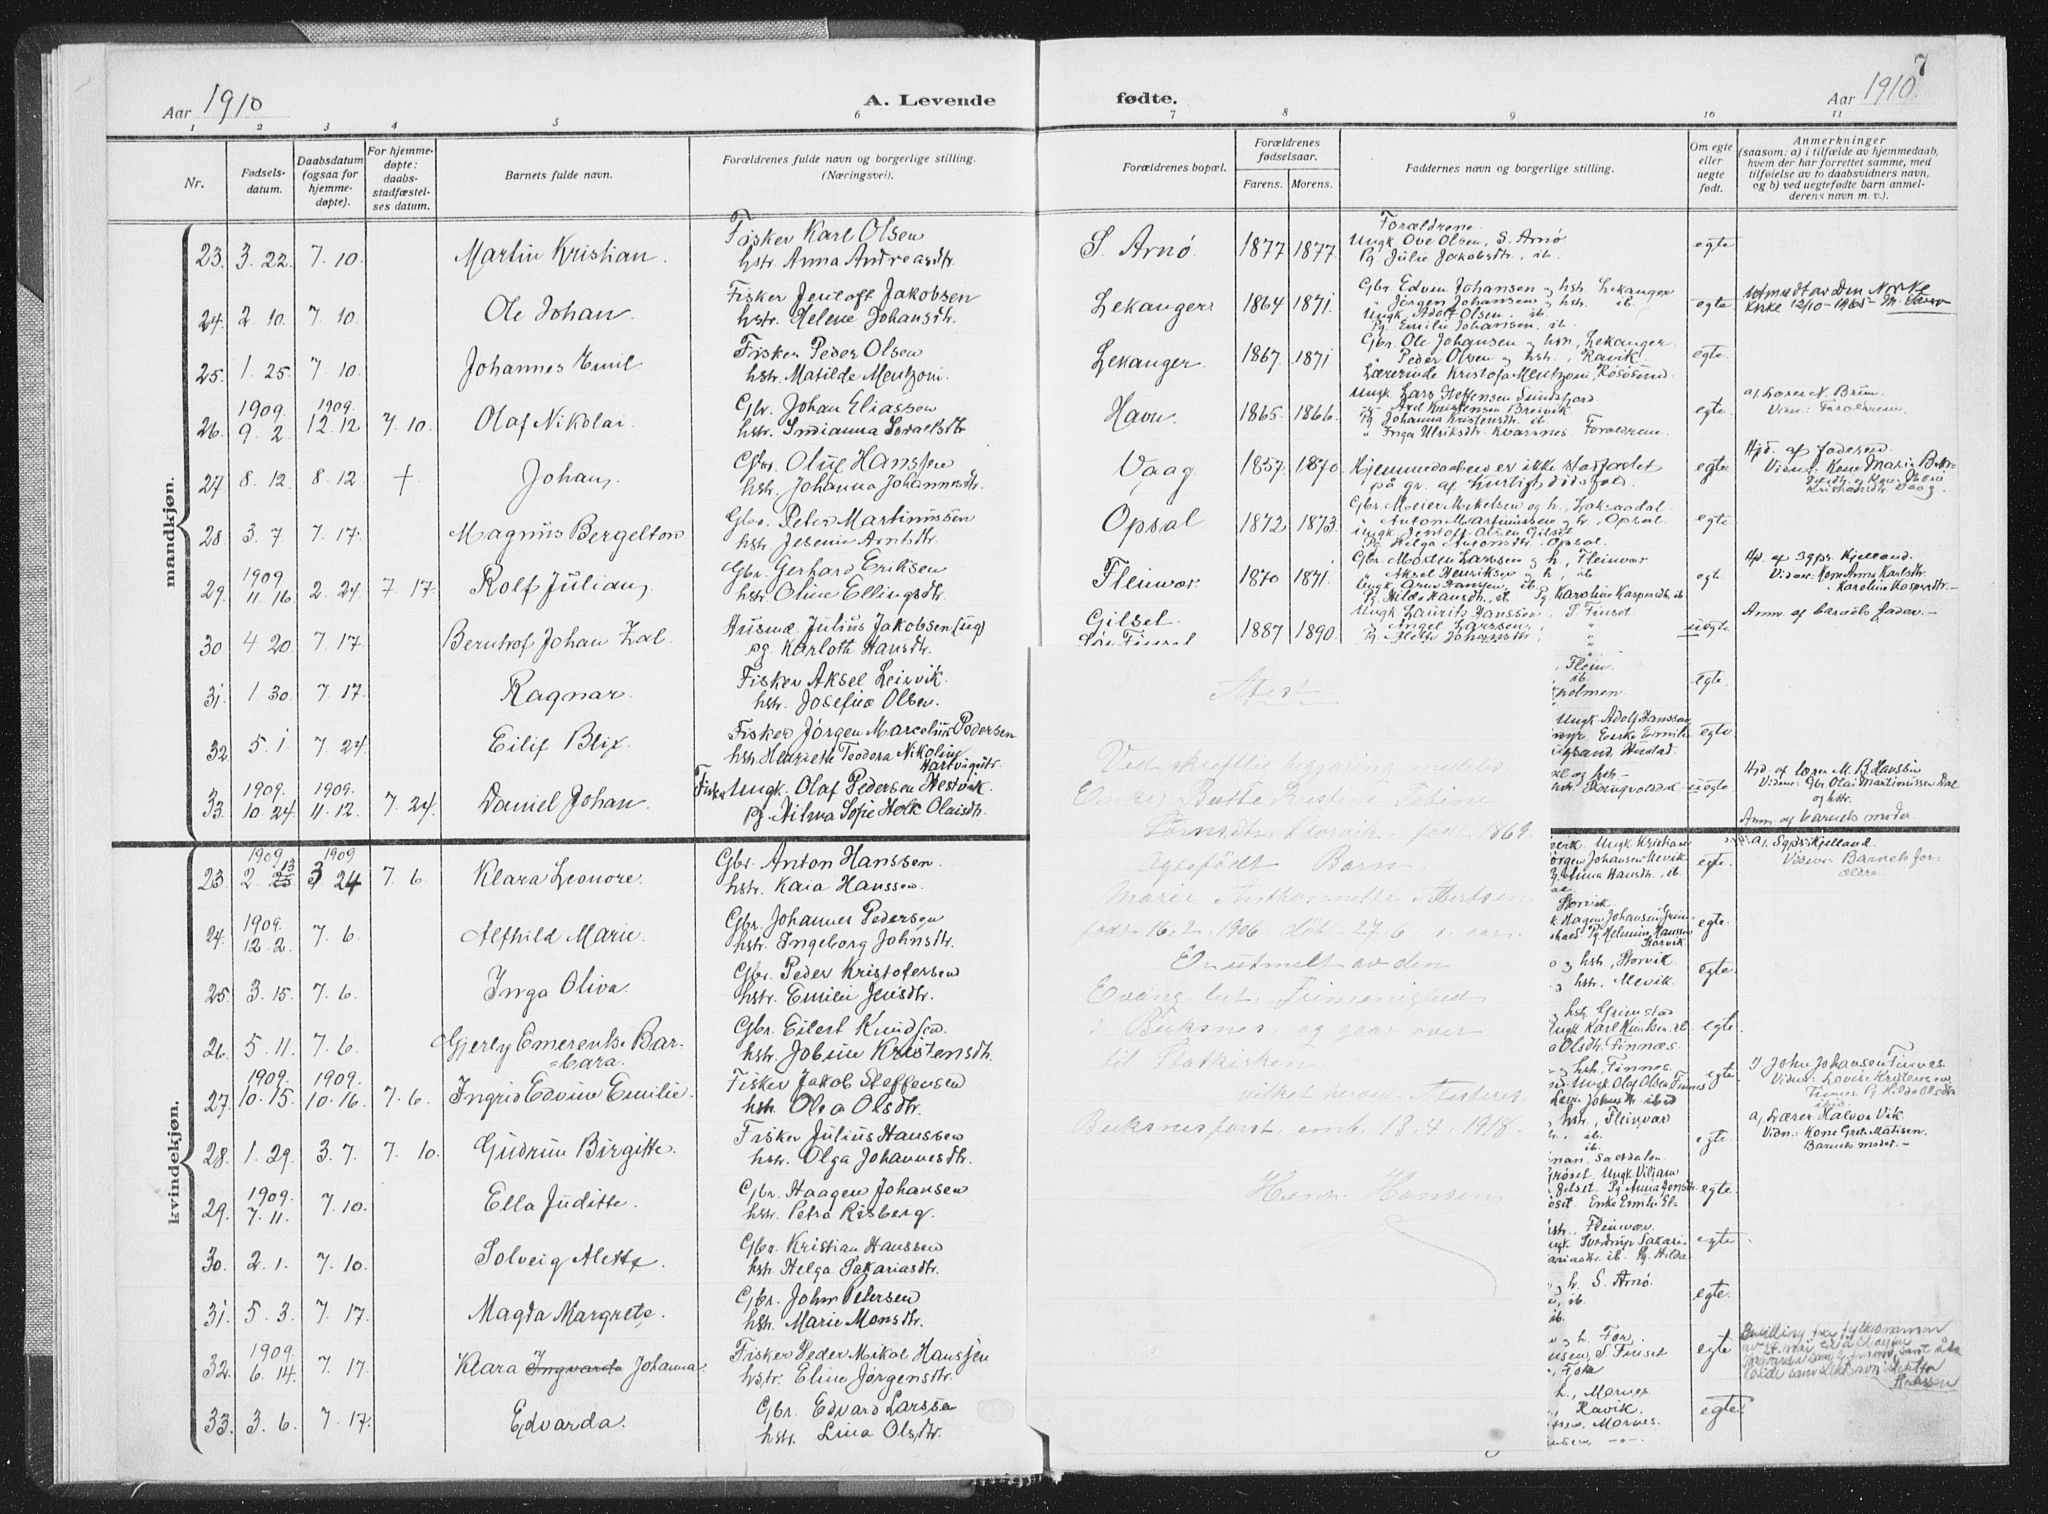 Aar 1910
A. Levende
1 2 3 4 5 6
Nr.
Fødsels-
datum.
Daabsdatum
(ogsaa for
hjemme-
døpte).
For hjemme-
døpte:
daabs-
stadfæstel-
ses datum.
Barnets fulde navn.
Forældrenes fulde navn og borgerlige stilling.
(Næringsvei).
mandkjøn.
23. 3. 22. 7. 10. Martin Kristian. Fisker Karl Olsen
hstr. Anna Andreasdtr.
24. 2. 10. 7. 10. Ole Johan. Fisker Jentoft Jakobsen
hstr. Helene Johansdtr.
25. 1. 25. 7. 10. Johannes Emil Fisker Peder Olsen
hstr. Matilde Mentzoni.
1909. 1909.
26. 9. 2. 12. 12 7. 10. Olaf Nikolai Gbr. Johan Eliassen
hstr. Indianna
27. 8. 12. 8. 12 + Johan, Gbr. Oluf Hanssen
hstr. Johanna Johannesdtr.
28. 3. 7. 7. 17. Magnus Bergelton Gbr. Peter Martinussen
hstr. Jesenie Arntsdtr.
1909
29. 11. 16 2. 24. 7. 17. Rolf Julian, Gbr. Gerhard Eriksen
hstr. Oline Ellingsdtr.
30 4. 20. 7. 17. Bernhof Johan Zal. Husmd. Julius Jakobsen (ug)
pg. Karloth Hansdtr.
31. 1. 30. 7. 17. Ragnar. Fisker Aksel Leirvik.
hstr. Josefine Olsen.
32. 5. 1. 7. 24. Eilif Blix. Fisker Jørgen Marcelius Pedersen
hstr. Henriette Teodora Nikoline
Hartvigsdtr.
1909. 1909.
33. 10. 24. 11. 12. 7. 24. Daniel Johan. Fisker Ungk. Olaf Pedersen Hestvik.
pg. Hilma Sofie Holk Olaisdtr.
kvindekjøn.
1909 1909
23. 2. 13 3 24 7. 6. Klara Leonore. Gbr. Anton Hanssen.
hstr. Kaia Hanssen.
1909.
24. 12. 2. 7. 6. Alfhild Marie. Gbr. Johannes Pedersen
hstr. Ingeborg Johnsdtr.
25. 3. 15. 7. 6. Inga Oliva. Gbr. Peder Kristofersen
hstr. Emilie Jensdtr.
26. 5. 11. 7. 6. Gjerly Emerentse Bar-
=bara. Gbr. Eilert Knudsen.
hstr. Jobine Kristensdtr.
1909. 1909.
27. 10. 15. 10. 16. 7. 6. Ingrid Edvine Emilie. Fisker Jakob Steffensen
hstr. Olea Olsdtr.
28. 1. 29. 3. 7. 7. 10. Gudrun Birgitte. Fisker Julius Hanssen
hstr. Olga Johannesdtr.
1909.
29. 7. 11. 7. 10. Ella Juditte. Gbr. Haagen Johansen
hstr. Petra Risberg.
30. 2. 1. 7. 10. Solveig Alette. Gbr. Kristian Hanssen
hstr. Helga Sakariasdtr.
31. 5. 3. 7. 17. Magda Margrete. Gbr. John Petersen
hstr. Marie Monsdtr.
1909.
32. 6. 14. 7. 17. Klara Ingvarda Johanna. Fisker Peder Mikal Hanssen
hstr. Eline Jørgensdtr.
33. 3. 6. 7. 17. Edvarda. Gbr. Edvard Larssen
hstr. Lina Olsdtr.
7
fødte.
Aar 1910.
7 8 9 10 11
Forældrenes bopæl.
Forældrenes
fødselsaar.
Farens. Morens.
Faddernes navn og borgerlige stilling.
Om egte
eller
uegte
født.
Anmerkninger
(saasom: a) i tilfælde av hjemmedaab,
hvem der har forrettet samme, med
tilføielse av to daabsvidners navn,
og b) ved uegtefødte barn anmel-
derens navn m. v.).
S. Arnø 1877 1877 Forældrene. egte
Ungk. Ove Olsen, S. Arnø
Pg. Julie Jakobsdtr., ib.
Lekanger. 1864 1871. Gbr. Edvin Johansen og hstr. Lekanger egte
" Jørgen Johansen og hstr. ib.
Ungk. Adolf Olsen, ib.
Pg. Emilie Johansen, ib.
Utmeldt av Den Norske
Kirke 12/10-1965
Lekanger. 1867. 1871 Gbr. Ole Johansen og hstr., Lekanger. egte.
" Peder Olsen og hstr., Ravik.
Lærerinde Kristofa Mentzoni, Røsøsund.
Havn 1865. 1866. Ungk. Lars Steffensen Sundsfjord egte.
Axel Kristensen Breivik
Pg. Johanna Kristensdtr. ib.
" Inga Ulriksdtr. Kvarsnes. Forældrene.
a, Lærer N. Brun
Vidn: Forældrene.
Vaag 1857. 1870. Hjemmedaaben er ikke stadfæstet egte.
på gr. af hurtigt dødsfald.
Hjd. af faderen.
Opsal 1872, 1873. Gbr. Meier Mikelsen og h., Laksaadal egte.
" Anton Martinussen og h., Opsal.
Ungk. Jentoft Olsen Gilset
Pg. Helga Antonsdtr. Opsal.
Fleinvær 1870 1871. Gbr. Morten Larssen og h, Fleinvær egte
" Aksel Henriksen og h, ib
Ungk. Arne Hanssen, ib.
Pg. Hilda Hansdtr., ib. Pg. Karoline Kaspersdtr. ib
Hjd. af Sgpr. Kjelland.
Vidner: Kone Anna Karlsdtr.
Karoline Kaspersdtr.-
Gilset 1887 1890. Ungk. Laurits Hanssen, S Finset uegte
" Angel Larssen, "
Anm. af barnets fader.-
, Flein egte.
ib.
holmen.
Ungk. Adolf Hanssen egte
Enke Emilie
Hustad.
og hstr- uegte
Hjd. af lærer M. B. Hanssen
Vidner: Gbr. Olai Martinussen Dal
og hstr.
Anm. af barnets moder.
Ungk. Kristian egte.
Jørgen Johansen Mevik
Anna Hansdtr., ib
a, Sgpr. Kjelland.
Vidner: Barnets for-
ældre.
Storvik. egte.
Hagen Johansen Grim-
Pg. Helmine Hanssen
Storvik.
og hstr, Storvik. egte.
og hstr., Mevik.
hstr Grimstad egte
Ungk Karl Knudsen, ib
Olsdtr. Finnæs.
og hstr., Finnes. egte.
Ungk Olaf Olsen Finnes
J John Johansen Finnes.
ibid.
hstr., Fleinvær egte
ib.
ib
a, Lærer Halvor Vik
Vidn: Kone Grete Matisen.
Barnets moder.-
Saksdalen. egte.
Ungk. Viljam
Gilset. Pg. Anna Jensdtr.
Enke Emilie El-
hstr. Fleinvær. egte
Ungk. Sverdrup Sakari-
ib. Pg. Hilda
og h. S. Arnø. egte.
ib.
ib.
og h. Fore egte
S Finset
Fore
Bevilling fra fylkesmannen
h., Mornes. egte.
, Ravik.
Mornes.
Attest
Ved skriftlig begjæring meldes
Enked Bertte Kristine Tobine
Tørrisdtr. Storvik født 1869
Ægtefødt Barn
Marie Anthonnette Albertsen
født 16. 2. 1906. døbt 27. 6. s. aar
Er utmelt av den
Evang. lut. Frimenighed
i Buksnes og gaar over
til Statkirken
vilket herved Atesteres
Buksnes forst. emb. 13. 4. 1918.
Henr. Hansen